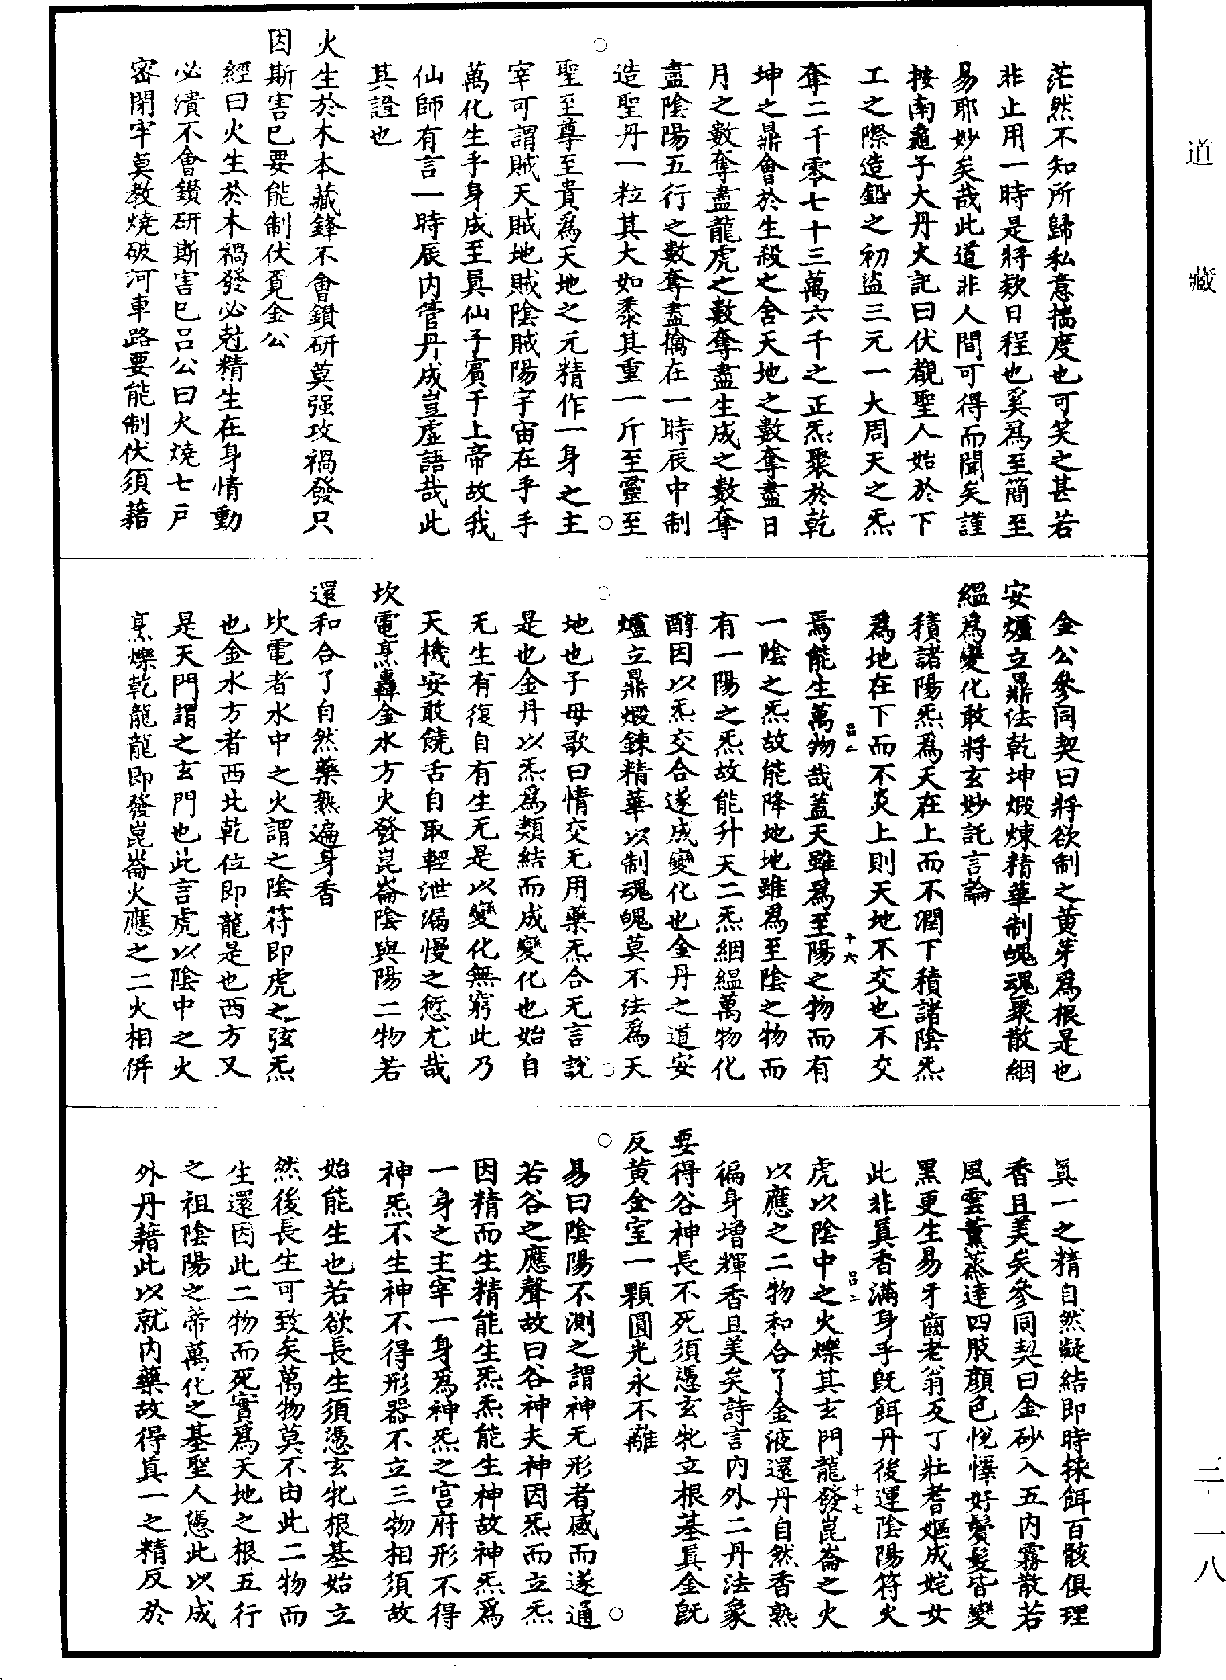 道藏
三·一八
茫然不知所歸私意揣度也可笑之甚若
非止用一時是將欵日程也奚爲至簡至
易耶妙矣哉此道非人間可得而聞矣謹
按南龜子大丹火記曰伏覩聖人始於下
工之際造鉛之初盜三元一大周天之炁
奪二千零七十三萬六千之正炁聚於乾
坤之鼎會於生殺之舍天地之數奪盡日
月之數奪盡龍虎之數奪盡生成之數奪
盡陰陽五行之數奪盡擒在一時辰中制
造聖丹一粒其大如黍其重一斤至靈至
聖至尊至貴爲天地之元精作一身之主
宰可謂賊天賊地賊陰賊陽宇宙在乎手
萬化生乎身成至眞仙子賓于上帝故我
仙師有言一時辰内管丹成豈虛語哉此
其證也
火生於木本藏鋒不會鑽研莫强攻禍發只
因斯害已要能制伏覓金公
經曰火生於木禍發必尅精生在身情動
必潰不會鑽研斯害已吕公曰火燒七戶
密閉牢莫教燒破河車路要能制伏須藉
金公參同契曰將欲制之黄芽爲根是也
安爐立鼎法乾坤煅煉精華制魄魂聚散絪
緼爲變化敢將玄妙託言論
積諸陽炁爲天在上而不潤下積諸陰炁
爲地在下而不炎上則天地不交也不交
焉能生萬物哉蓋天雖爲至陽之物而有
一陰之炁故能降地地雖爲至陰之物而
有一陽之炁故能升天二炁絪緼萬物化
醇因以炁交合遂成變化也金丹之道安
爐立鼎煅鍊精華以制魂魄莫不法爲天
地也子母歌曰情交无用藥炁合无言說
是也金丹以炁爲類結而成變化也始自
无生有復自有生无是以變化無窮此乃
天機安敢饒舌自取輕泄漏慢之愆尤哉
坎電烹轟金水方火發崑崙陰與陽二物若
還和合了自然藥熟遍身香
坎電者水中之火謂之陰符即虎之弦炁
也金水方者西北乾位即龍是也西方又
是天門謂之玄門也此言虎以陰中之火
烹爍乾龍龍即發崑崙火應之二火相併
眞一之精自然凝結即時採餌百骸俱理
香且美矣參同契曰金砂入五内霧散若
風雲薰蒸達四肢顔色悅懌好鬢髮皆變
黑更生易牙齒老翁反丁壯耆嫗成姹女
此非眞香滿身乎旣餌丹後運陰陽符火
虎以陰中之火爍其玄門龍發崑崙之火
以應之二物和合了金液還丹自然香熟
徧身增輝香且美矣詩言内外二丹法象
要得谷神長不死須憑玄牝立根基眞金旣
反黄金室一顆圓光永不離
易曰陰陽不測之謂神无形者感而遂通
若谷之應聲故曰谷神夫神因炁而立炁
因精而生精能生炁炁能生神故神炁爲
一身之主宰一身爲神炁之宫府形不得
神炁不生神不得形器不立三物相須故
始能生也若欲長生須憑玄牝根基始立
然後長生可致矣萬物莫不由此二物而
生還因此二物而死實爲天地之根五行
之祖陰陽之蒂萬化之基聖人憑此以成
外丹藉此以就内藥故得眞一之精反於
吕二
十六
吕二
十七